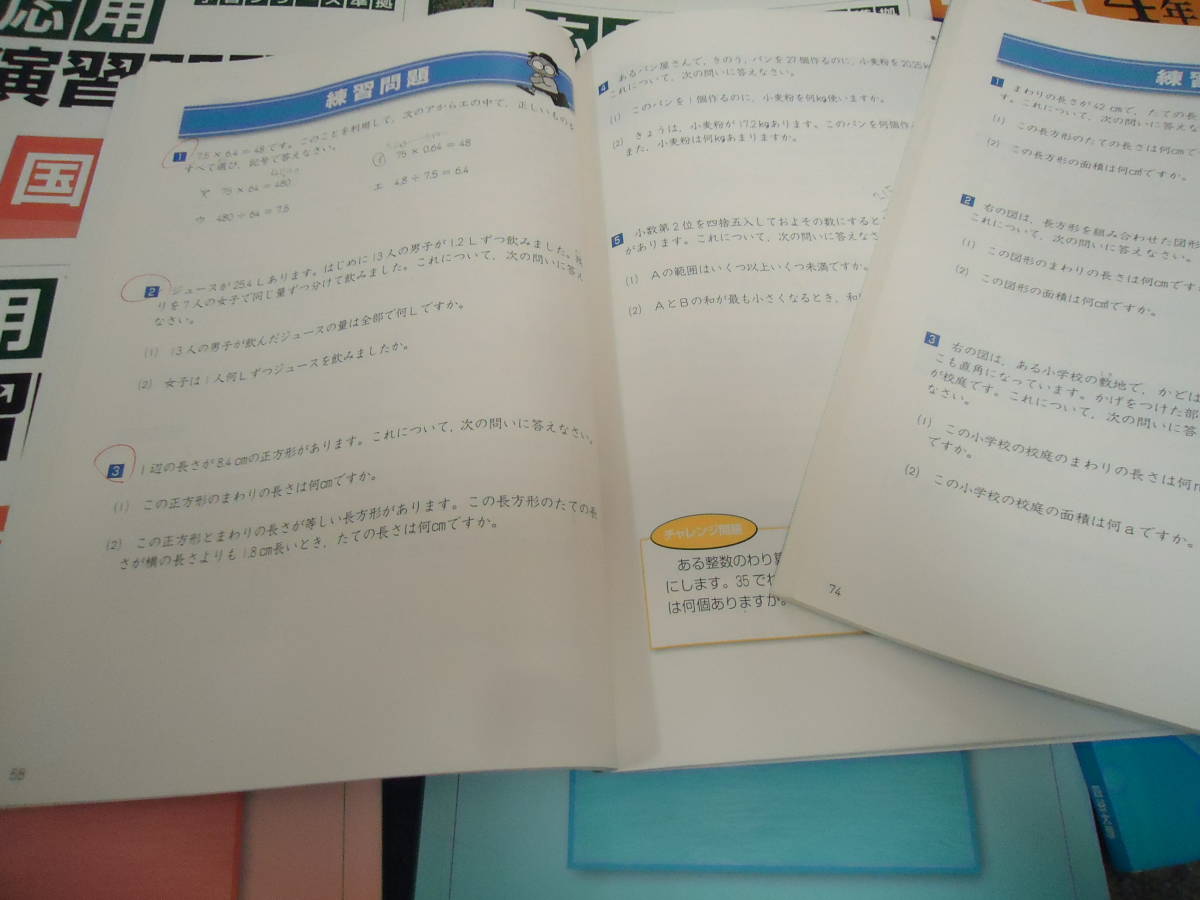 応用
演習問題
国
用
習
4年
練習問題
1 7.5×6.4=48です。このことを利用して、次のアからエの中で、正しいものを
すべて選び、記号で答えなさい。
ア 75×64=480
イ 75×0.64=48
ウ 480÷64=7.5
エ 4.8÷7.5=6.4
2 ジュースが25.4Lあります。はじめに13人の男子が1.2Lずつ飲みました。残
りを7人の女子で同じ量ずつ分けて飲みました。これについて、次の問いに答え
なさい。
(1) 13人の男子が飲んだジュースの量は全部で何Lですか。
(2) 女子は1人何Lずつジュースを飲みましたか。
3 1辺の長さが8.4cmの正方形があります。これについて、次の問いに答えなさい。
(1) この正方形のまわりの長さは何cmですか。
(2) この正方形とまわりの長さが等しい長方形があります。この長方形のたての長
さが横の長さよりも1.8cm長いとき、たての長さは何cmですか。
68
4 あるパン屋さんで、きのう、パンを27個作るのに、小麦粉を20.25k
これについて、次の問いに答えなさい。
(1) このパンを1個作るのに、小麦粉を何kg使いますか。
(2) きょうは、小麦粉が17.2kgあります。このパンを何個作
また、小麦粉は何kgあまりますか。
5 小数第2位を四捨五入しておよその数にすると
があります。これについて、次の問いに答えなさ
(1) Aの範囲はいくつ以上いくつ未満ですか。
(2) AとBの和が最も小さくなるとき、和
チャレンジ問題
ある整数のわり算
にします。35でわ
は何個ありますか。
練習
1 まわりの長さが42cmで、たての長
す。これについて、次の問いに答えな
(1) この長方形のたての長さは何cmで
(2) この長方形の面積は何cm²ですか。
2 右の図は、長方形を組み合わせた図形
これについて、次の問いに答えなさい。
(1) この図形のまわりの長さは何cmです
(2) この図形の面積は何cm²ですか。
3 右の図は、ある小学校の敷地で、かどは
こも直角になっています。かげをつけた部
が校庭です。これについて、次の問いに答
なさい。
(1) この小学校の校庭のまわりの長さは何m
ですか。
(2) この小学校の校庭の面積は何aですか。
74